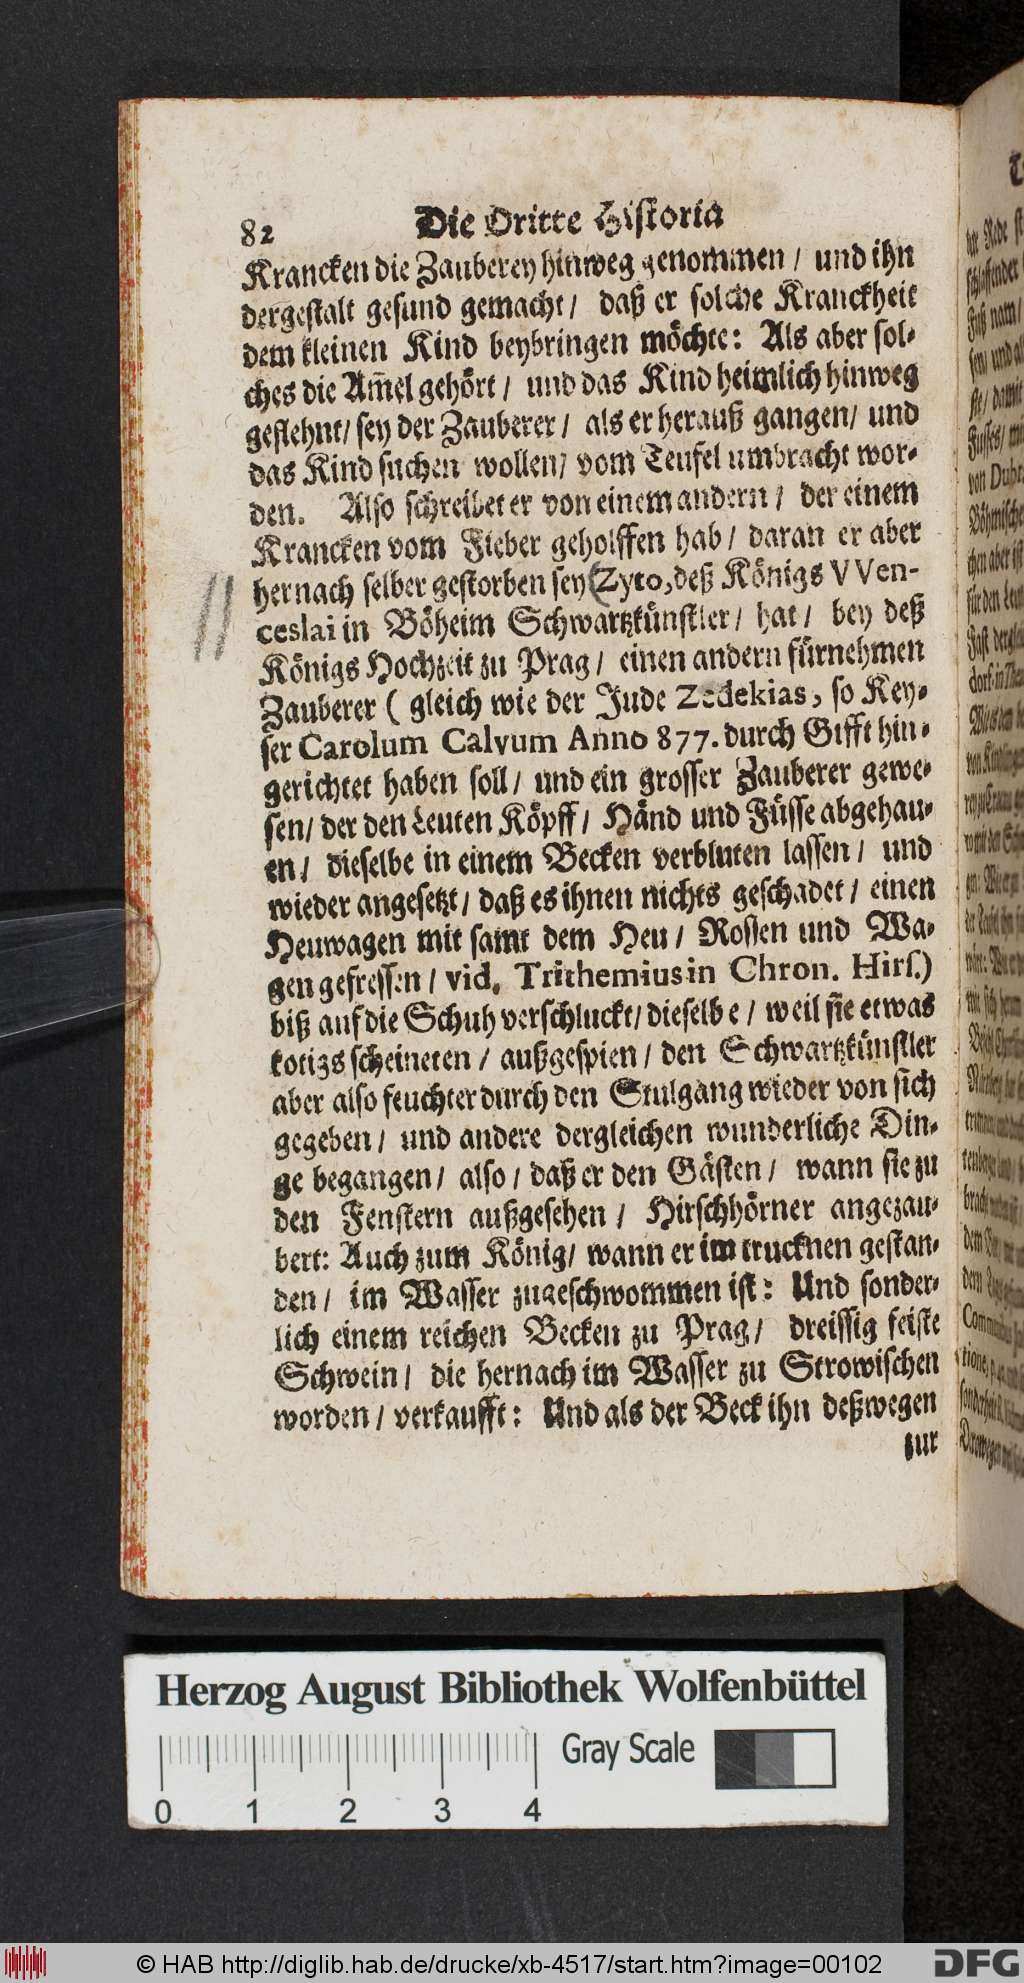 82 Die Dritte Historia
Krancken die Zauberey hinweg genommen / und ihn
dergestalt gesund gemacht / daß er solche Kranckheit
dem kleinen Kind beybringen möchte: Als aber sol-
ches die Am̃el gehört / und das Kind heimlich hinweg
geflehnt / sey der Zauberer / als er herauß gangen / und
das Kind suchen wollen / vom Teufel umbracht wor-
den. Also schreibet er von einem andern / der einem
Krancken vom Fieber geholffen hab / daran er aber
hernach selber gestorben sey (Zyto, deß Königs VVen-
ceslai in Böheim Schwartzkünstler / hat / bey deß
Königs Hochzeit zu Prag / einen andern fürnehmen
Zauberer ( gleich wie der Jude Zedekias, so Key-
ser Carolum Calvum Anno 877. durch Gifft hin-
gerichtet haben soll / und ein grosser Zauberer gewe-
sen / der den Leuten Köpff / Händ und Füsse abgehau-
en / dieselbe in einem Becken verbluten lassen / und
wieder angesetzt / daß es ihnen nichts geschadet / einen
Heuwagen mit samt dem Heu / Rossen und Wa-
gen gefressen / vid. Trithemius in Chron. Hirs.)
biß auf die Schuh verschluckt / dieselbe / weil sie etwas
kotigs scheineten / außgespien / den Schwartzkünstler
aber also feuchter durch den Stulgang wieder von sich
gegeben / und andere dergleichen wunderliche Din-
ge begangen / also / daß er den Gästen / wann sie zu
den Fenstern außgesehen / Hirschhörner angezau-
bert: Auch zum König / wann er im trucknen gestan-
den / im Wasser zugeschwommen ist: Und sonder-
lich einem reichen Becken zu Prag / dreissig feiste
Schwein / die hernach im Wasser zu Strowischen
worden / verkaufft: Und als der Beck ihn deßwegen
zur
Herzog August Bibliothek Wolfenbüttel
Gray Scale
0 1 2 3 4
© HAB http://diglib.hab.de/drucke/xb-4517/start.htm?image=00102
DFG